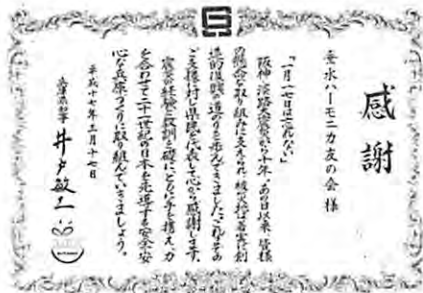 感謝
垂水ハーモニカ友の会 様
「一月一七日は忘れない」
阪神・淡路大震災から十年、あの日以来、皆様
の懸命な取り組みに支えられ、被災地は着実に創
造的復興の道のりを歩んできました。これまでの
ご支援に対し県民を代表して心から感謝します。
震災の経験と教訓を礎に、ともに手を携え、力
を合わせて二十一世紀の日本を先導する安全安
心な兵庫づくりに取り組んでいきましょう。
平成十七年三月十七日
兵庫県知事 井戸敏三